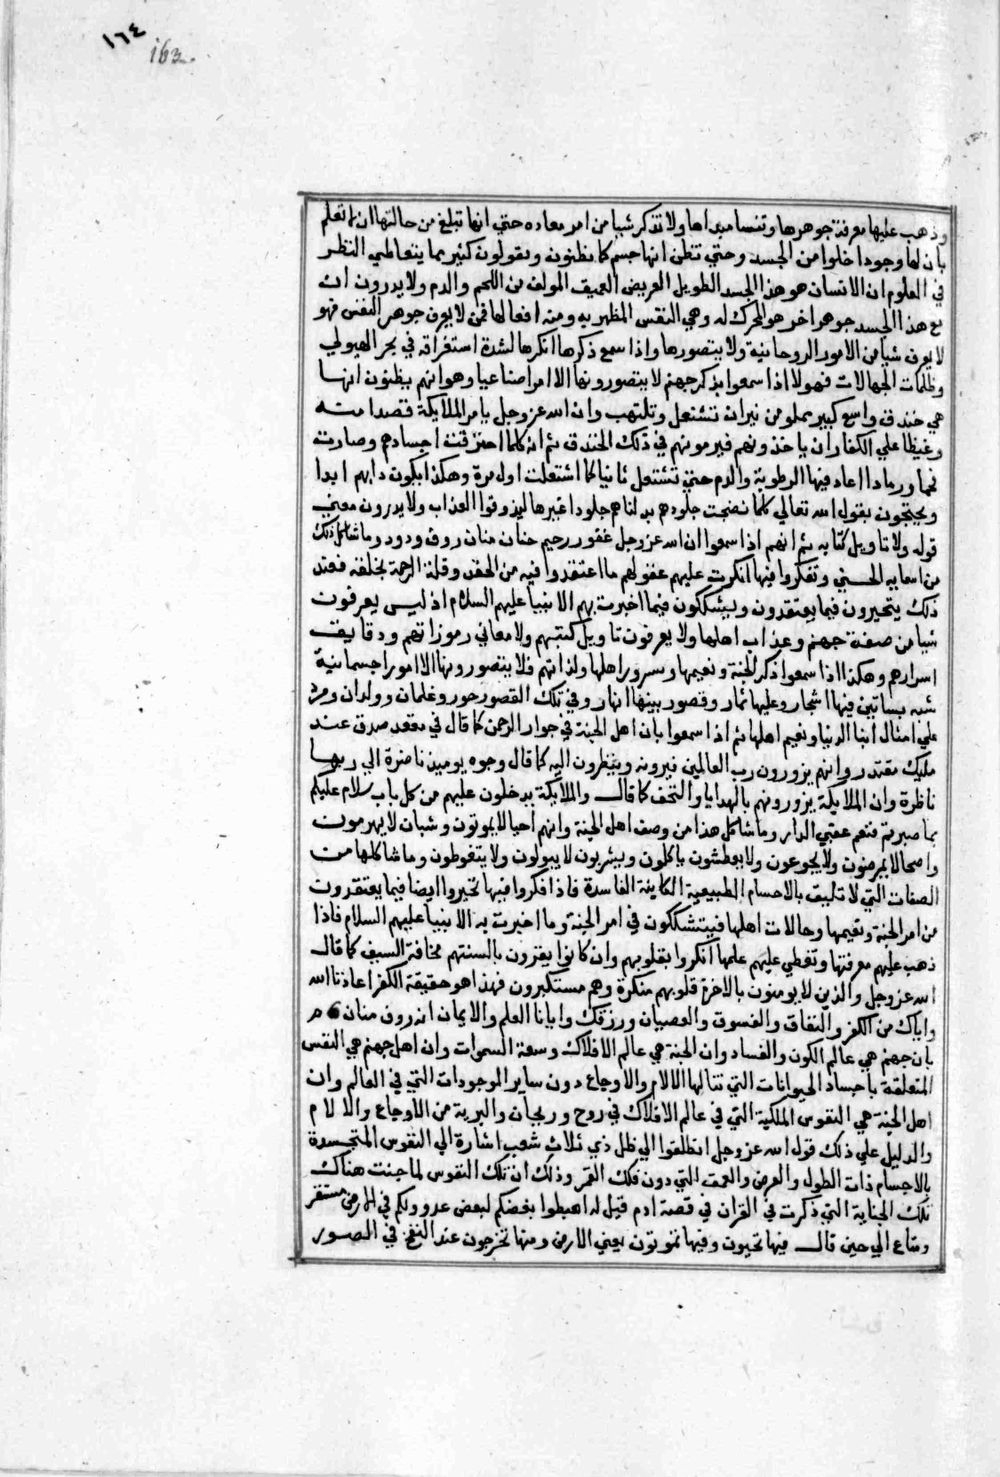 ١٦٤
163.
وذهب عليها معرفة جوهرها وتنسا مبداها ولا تتذكر شيا من امر معاده حتي انها تبلغ من حالتها ان لا تعلم
بان لها وجودا خلوا من الجسد وحتي تظن انها جسم كما يظنون ويقولون كثير مما يتعاطي النظر
في العلوم ان الانسان هو هذا الجسد الطويل العريض العميق المولف من اللحم والدم ولا يدرون ان
مع هذا الجسد جوهرا اخر هو المحرك له وهي النفس المظهر به ومنه افعالها فمن لا يعرف جوهر النفس فهو
لا يعرف شيا من الامور الروحانية ولا يتصورها واذا سمع ذكرها انكرها لشدة استغراقه في بحر الهيولي
وظلمات الجهالات فهولا اذا سمعوا بذكر جهنم لا يتصورونها الا امرا صناعيا وهو انهم يظنون انها
هي خندق واسع كبير مملو من نيران تشتعل وتلتهب وان الله عز وجل يامر الملايكة قصدا منه
وغيظا علي الكفار ان ياخذونهم فيرمونهم في ذلك الخندق ثم انه كلما احترقت اجسادهم وصارت
فحما ورمادا اعاد فيها الرطوبة والدم حتي تشتعل ثانيا كما اشتعلت اول مرة وهكذا يكون دابهم ابدا
ويحتجون بقول الله تعالي كلما نضجت جلودهم بدلناهم جلودا غيرها ليذوقوا العذاب ولا يدرون معني
قوله ولا تاويل كتابه ثم انهم اذا سمعوا ان الله عز وجل غفور رحيم حنان منان روف ودود وما شاكل ذلك
من اسمايه الحسني وتفكروا فيها انكرت عليهم عقولهم ما اعتقدوا فيه من الحقد وقلة الرحمة بخلقه فعند
ذلك يتحيرون فيما يعتقدون ويشككون فيما اخبرت بهم الانبيا عليهم السلام اذ ليس يعرفون
شيا من صفة جهنم وعذاب اهلها ولا يعرفون تاويل كتبهم ولا معاني رموزاتهم ودقايق
اسرارهم وهكذا اذا سمعوا ذكر الجنة ونعيمها وسرور اهلها ولذاتهم فلا يتصورونها الا امورا جسمانية
شبه بساتين فيها اشجار وعليها ثمار وقصور بينها انهار وفي تلك القصور حور وغلمان وولدان ومرد
علي امثال ابنا الدنيا ونعيم اهلها ثم اذا سمعوا بان اهل الجنة في جوار الرحمن كما قال في مقعد صدق عند
مليك مقتدر وانهم يزورون رب العالمين فيرونه وينظرون اليه كما قال وجوه يوميذ ناضرة الي ربها
ناظرة وان الملايكة يزورونهم بالهدايا والتحف كما قال والملايكة يدخلون عليهم من كل باب سلام عليكم
بما صبرتم فنعم عقبي الدار وما شاكل هذا من وصف اهل الجنة وانهم احيا لا يموتون وشبان لا يهرمون
واصحا لا يمرضون ولا يجوعون ولا يعطشون ياكلون ويشربون لا يبولون ولا يتغوطون وما شاكلها من
الصفات التي لا تليق بالاجسام الطبيعية الكاينة الفاسدة فاذا فكروا فيها تحيروا ايضا فيما يعتقدون
من امر الجنة ونعيمها وحالات اهلها فيتشككون في امر الجنة وما اخبرت به الانبيا عليهم السلام فاذا
ذهب عليهم معرفتها وتغطي عليهم علمها انكروا بقلوبهم وان كانوا يقرون بالسنتهم مخافة السيف كما قال
الله عز وجل والذين لا يومنون بالاخرة قلوبهم منكرة وهم مستكبرون فهذا هو حقيقة الكفر اعاذنا الله
واياك من الكفر والنفاق والفسوق والعصيان ورزقك وايانا العلم والايمان انه روف منان
بان جهنم هي عالم الكون والفساد وان الجنة هي عالم الافلاك وسعة السموات وان اهل جهنم هي النفس
المتعلقة باجساد الحيوانات التي تنالها الالام والاوجاع دون ساير الموجودات التي في العالم وان
اهل الجنة هي النفوس الملكية التي في عالم الافلاك في روح وريحان والبرية من الاوجاع والالام
والدليل علي ذلك قول الله عز وجل انطلقوا الي ظل ذي ثلاث شعب اشارة الي النفوس المتجسدة
بالاجسام ذات الطول والعرض والعمق التي دون فلك القمر وذلك ان تلك النفوس لما جنت هناك
تلك الجناية التي ذكرت في القران في قصة ادم قيل له اهبطوا بعضكم لبعض عدو ولكم في الارض مستقر
ومتاع الي حين قال فيها تحيون وفيها تموتون يعني الارض ومنها تخرجون عند النفخ في الصور